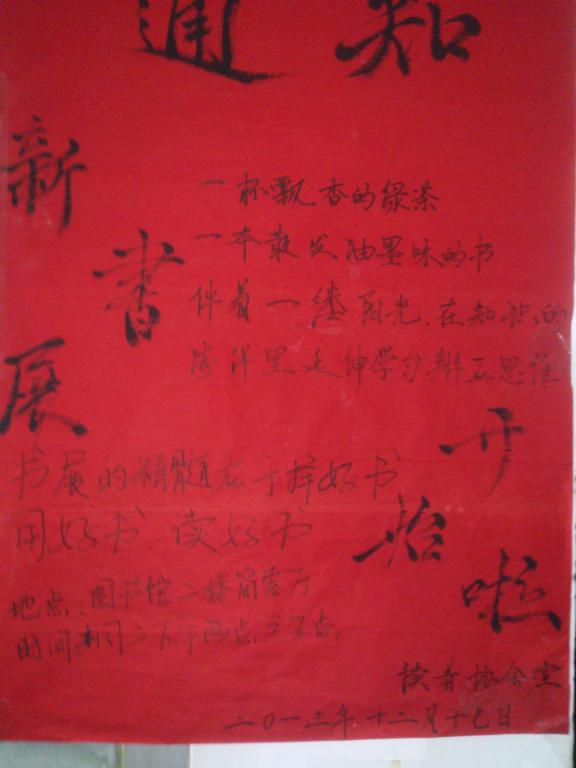 通知
新書展
一杯飘香的绿茶
一本散发油墨味的书
伴着一缕阳光,在知识的
海洋里延伸学习辨正思维
书展的精髓在于择好书
用好书、读好书
开始啦
地点:图书馆二楼
时间:周二下午两点至五点
读者协会宣
二〇一三年十二月十七日